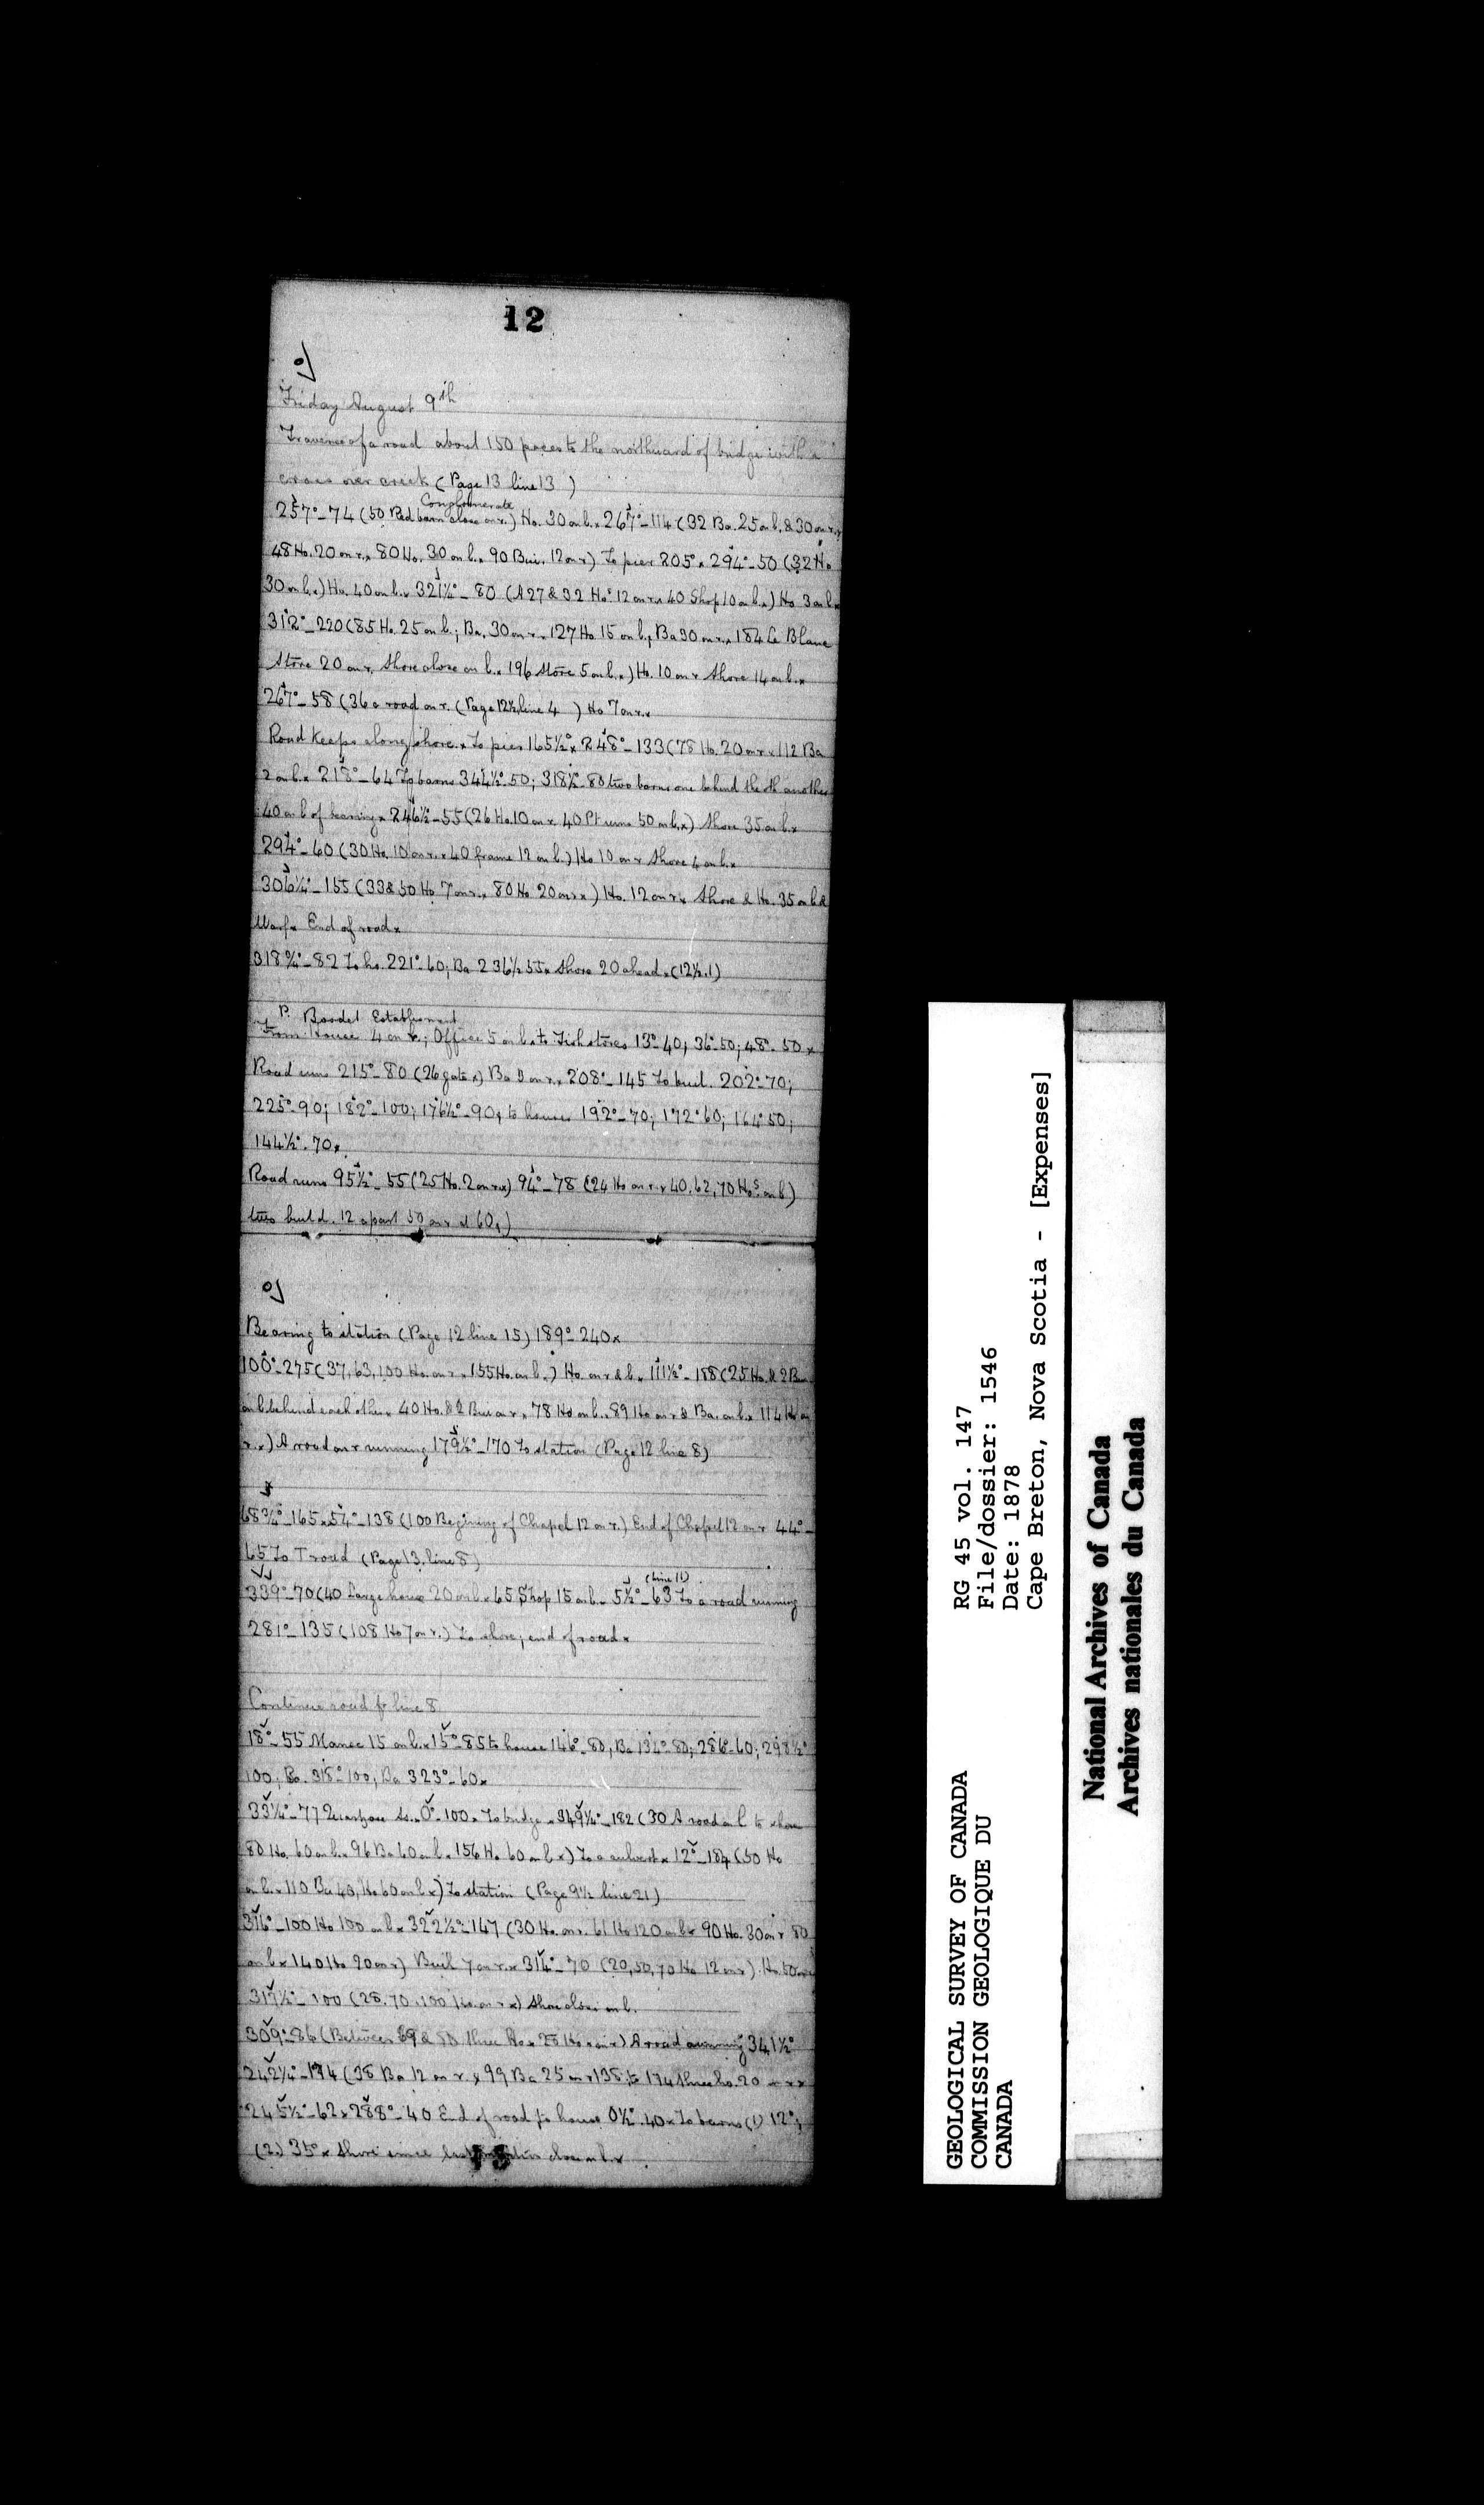 12
Friday August 9th
Traverse of a road about 150 paces to the northward of bridge with a
cross over creek (Page 13 line 13 )
Conglomerate
257°_74 (50 Red barn close on r.) Ho. 30 on l.x 267°_114 (32 Ba. 25 on l. & 30 on r.x
48 Ho. 20 on r.x 80 Ho. 30 on l.x 90 Bui. 12 on r) To pier 205°x 294°_50 (32 Ho
30 on l.x) Ho. 40 on l.x 321¼°_80 (A 27 & 32 Hos 12 on r.x 40 Shop 10 on l.x) Ho 3 on l.x
312°_220 (85 Ho. 25 on l.; Ba. 30 on r.x 127 Ho 15 on l., Ba 30 on r.x 184 Le Blanc
Store 20 on r. Shore close on l.x 196 Store 5 on l.x) Ho. 10 on r Shore 14 on l.x
267°_58 (36 a road on r. (Page 12½ line 4 ) Ho 7 on r.x
Road keeps along shore.x To pier 165½°x 248°_133 (78 Ho. 20 on r x 112 Ba
2 on l.x 218°_64 To barns 344½°_50; 318½°_80 two barns one behind the another
40 on l of bearing x 246½_55 (26 Ho. 10 on r 40 Pt runs 50 on l.x) Shore 35 on l.x
294°_60 (30 Ho. 10 on r.x 40 frame 12 on l.) Ho 10 on r Shore 4 on l.x
306¼°_155 (33 & 50 Ho. 7 on r.x 80 Ho 20 on r x) Ho. 12 on r x Shore & Ho. 35 on l &
Warf x End of road x
318¾°_82 To ho. 221°_60; Ba 236½ 55x Shore 20 ahead x (12½.1)
P. Bordel Establisment
From House 4 on r.; Office 5 on l.x to Fish stores 13°_40; 36°_50; 48°_50x
Road runs 215°_80 (26 gate x) Ba 9 on r.x 208°_145 To buil. 202°_70;
225°_90; 182°_100; 176½°_90, to houses 192°_70; 172°60; 164°50;
144½°.70x
Road runs 95½°_55 (25 Ho. 2 on r x) 94°_78 (24 Ho on r.x 40, 62, 70 Hos. on l)
two build. 12 apart 50 on r & 60,)
Bearing to station (Page 12 line 15) 189°_240x
100°_275 (37, 63, 100 Ho. on r.x 155 Ho. on l.) Ho. on r & l.x 111½°_188 (25 Ho. & 2 Bui.
on l. behind each other x 40 Ho. & 2 Bui on r.x 78 Ho on l.x 89 Ho on r & Ba. on l.x 114 Ho on
r.x) A road on r running 179½°_170 To station (Page 12 line 8)
68¾°_165x 54°_138 (100 Begining of Chapel 12 on r.) End of Chapel 12 on r 44°_
65 To T road (Page 13. line 8)
(line 11)
339°_70 (40 Large house 20 on l.x 65 Shop 15 on l.x 5½°_63 To a road running
281°_135 (108 Ho 7 on r.) To shore, end of road x
Continue road fr line 8
18°_55 Manse 15 on l.x 15°_85 to house 146°_80, Ba 134°_80; 286°_60; 298½°
100; Bo. 318°_100, Ba 323°_60x
33¼°_77 0°_100x To bridge x 349¼°_182 (30 A road on l to shore
80 Ho. 60 on l.x 96 Ba 60 on l.x 156 Ho 60 on l x) To a culvert x 12°_184 (50 Ho
on l.x 110 Ba 40, Ho 60 on l x) To station (Page 9½ line 21)
316°_100 Ho 100 on l.x 322½°_147 (30 Ho. on r. 61 Ho 120 on l x 90 Ho. 30 on r 80
on l x 140 Ho 20 on r) Buil 7 on r.x 314°_70 (20, 50, 70 Ho 12 on r). Ho. 50
317½°_100 (28. 70. 100 Ho. on r x) Shore close on l.
309°_86 (Between 69 & 80 three Ho x on r) A road running 341½°
242¼°_174 (38 Ba 12 on r. x 99 Ba 25 on r 138 to 174 three ho. 20 on r x
245½°_62x 288°_40 End of road to house 0½°.40x To barns (1) 12°;
(2) 35°x Shore since last station close on l.x
13
GEOLOGICAL SURVEY OF CANADA
COMMISSION GEOLOGIQUE DU
CANADA
RG 45 vol. 147
File/dossier: 1546
Date: 1878
Cape Breton, Nova Scotia - [Expenses]
National Archives of Canada
Archives nationales du Canada